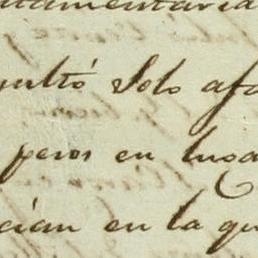 tamentaria
sultó solo afa
pesos en luga
cian en la qu